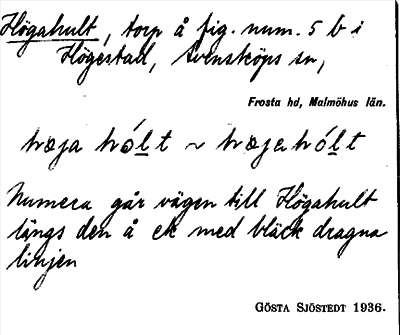 Högahult, torp å fig. num. 5 b i
Högestad, Svensköps sn,
Frosta hd, Malmöhus län.
hæja hólt ~ hæjahólt
Numera går vägen till Högahult
längs den å ek med bläck dragna
linjen
GÖSTA SJÖSTEDT 1936.